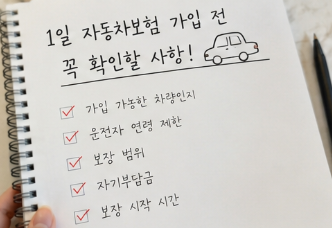 1일 자동차보험 가입 전
꼭 확인할 사항!
가입 가능한 차량인지
운전자 연령 제한
보장 범위
자기부담금
보장 시작 시간